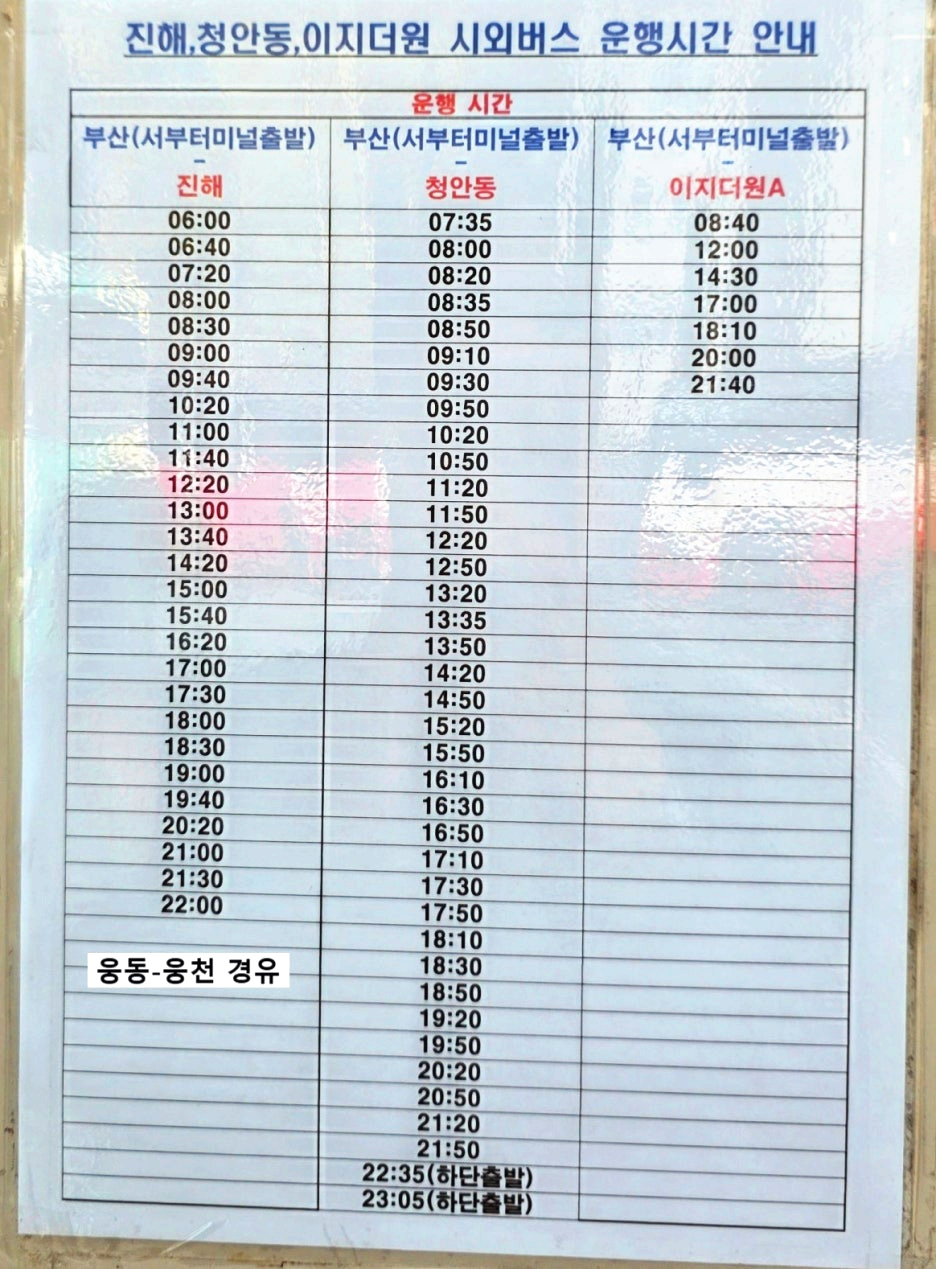 진해,청안동,이지더원 시외버스 운행시간 안내
운행 시간
부산(서부터미널출발) 부산(서부터미널출발) 부산(서부터미널출발)
– – –
진해 청안동 이지더원A
06:00 07:35 08:40
06:40 08:00 12:00
07:20 08:20 14:30
08:00 08:35 17:00
08:30 08:50 18:10
09:00 09:10 20:00
09:40 09:30 21:40
10:20 09:50
11:00 10:20
11:40 10:50
12:20 11:20
13:00 11:50
13:40 12:20
14:20 12:50
15:00 13:20
15:40 13:35
16:20 13:50
17:00 14:20
17:30 14:50
18:00 15:20
18:30 15:50
19:00 16:10
19:40 16:30
20:20 16:50
21:00 17:10
21:30 17:30
22:00 17:50
18:10
웅동-웅천 경유 18:30
18:50
19:20
19:50
20:20
20:50
21:20
21:50
22:35(하단출발)
23:05(하단출발)